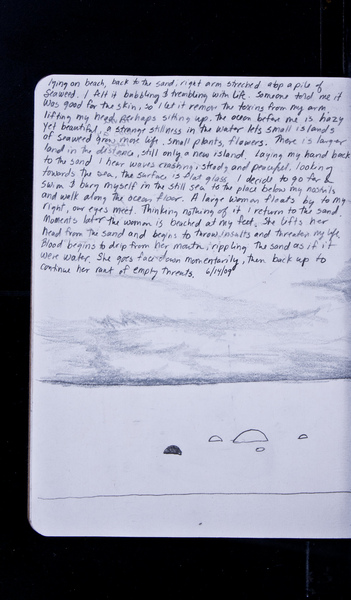 lying on beach, back to the sand, right arm streched atop a pile of
Seaweed. I felt it bubbling & trembling with life. Someone told me it
was good for the skin, so I let it remove the toxins from my arm.
lifting my head, perhaps sitting up, the ocean before me is hazy
yet beautiful, a strange stillness in the water lets small islands
of seaweed grow more life. small plants, flowers. There is larger
land in the distance, still only a new island. Laying my hand back
to the sand I hear waves crashing, steady and peaceful. looking
towards the sea, the surface is flat glass. I decide to go for a
swim. I bury myself in the still sea to the place below my nostrils
and walk along the ocean floor. A large woman floats by to my
right, our eyes meet. Thinking nothing of it I return to the sand.
Moments later the woman is beached at my feet. She lifts her
head from the sand and begins to throw insults and threaten my life.
Blood begins to drip from her mouth, rippling the sand as if it
were water. She goes face down momentarily, then back up to
continue her rant of empty threats. 6/14/09